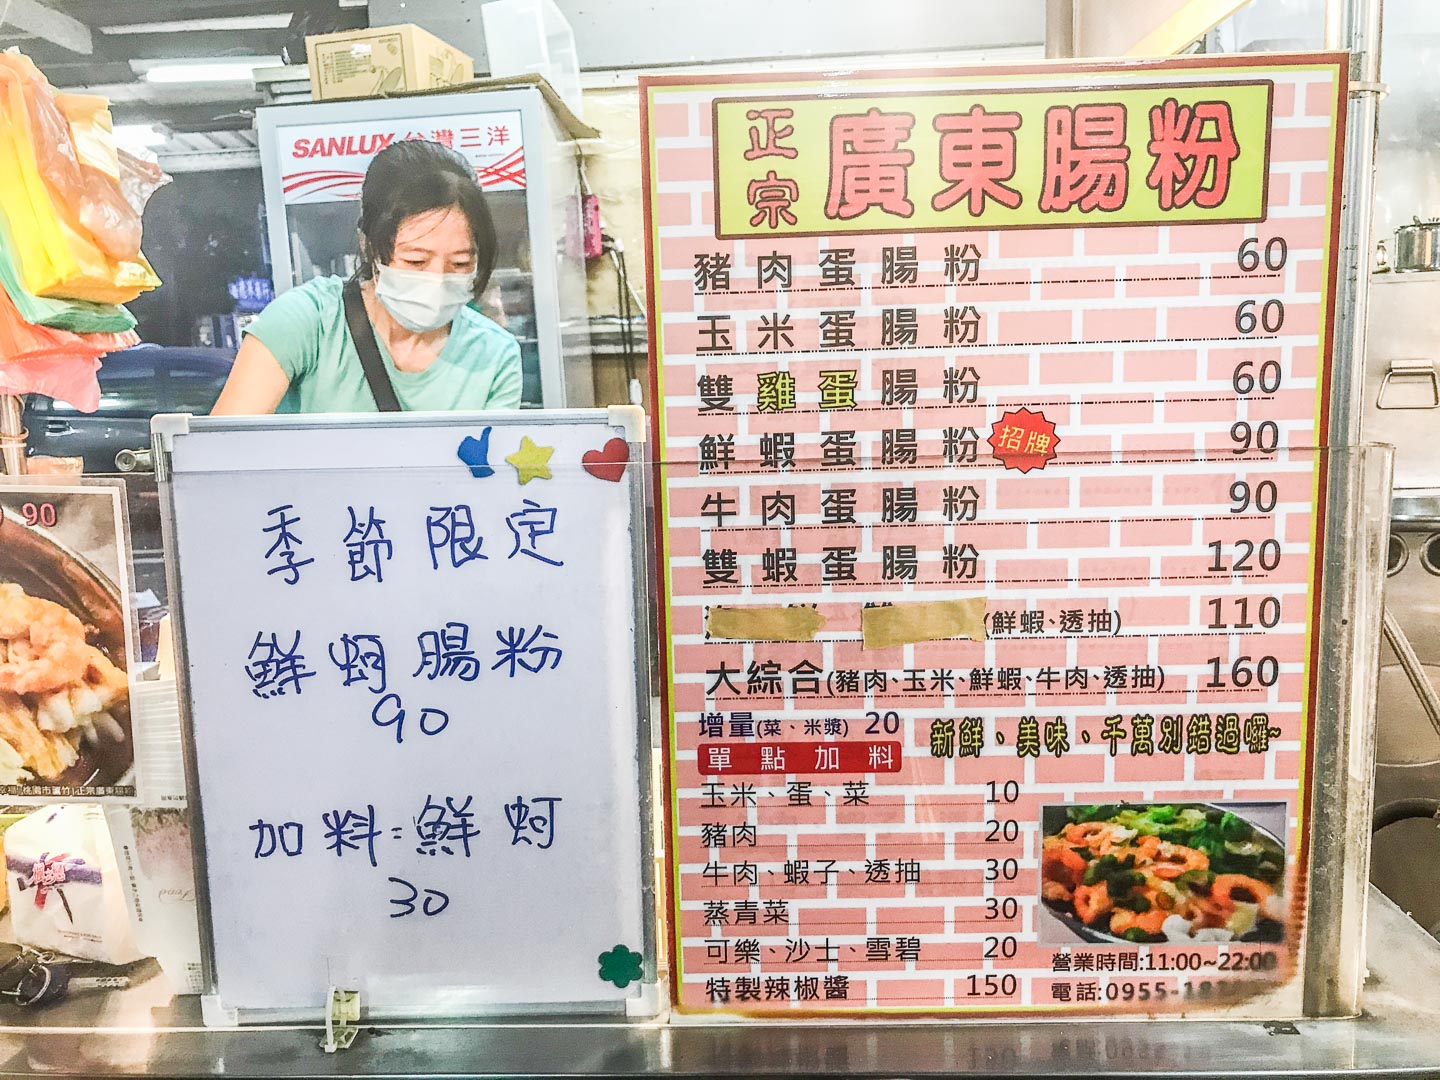 SANLUX 台灣三洋
90
季節限定
鮮蚵腸粉
90
加料:鮮蚵
30
正宗
廣東腸粉
豬肉蛋腸粉 60
玉米蛋腸粉 60
雙雞蛋腸粉 60
鮮蝦蛋腸粉 招牌 90
牛肉蛋腸粉 90
雙蝦蛋腸粉 120
(鮮蝦、透抽) 110
大綜合(豬肉、玉米、鮮蝦、牛肉、透抽) 160
增量(菜、米漿) 20
新鮮、美味、千萬別錯過囉~
單點加料
玉米、蛋、菜 10
豬肉 20
牛肉、蝦子、透抽 30
蒸青菜 30
可樂、沙士、雪碧 20
特製辣椒醬 150
營業時間:11:00~22:00
電話:0955-18